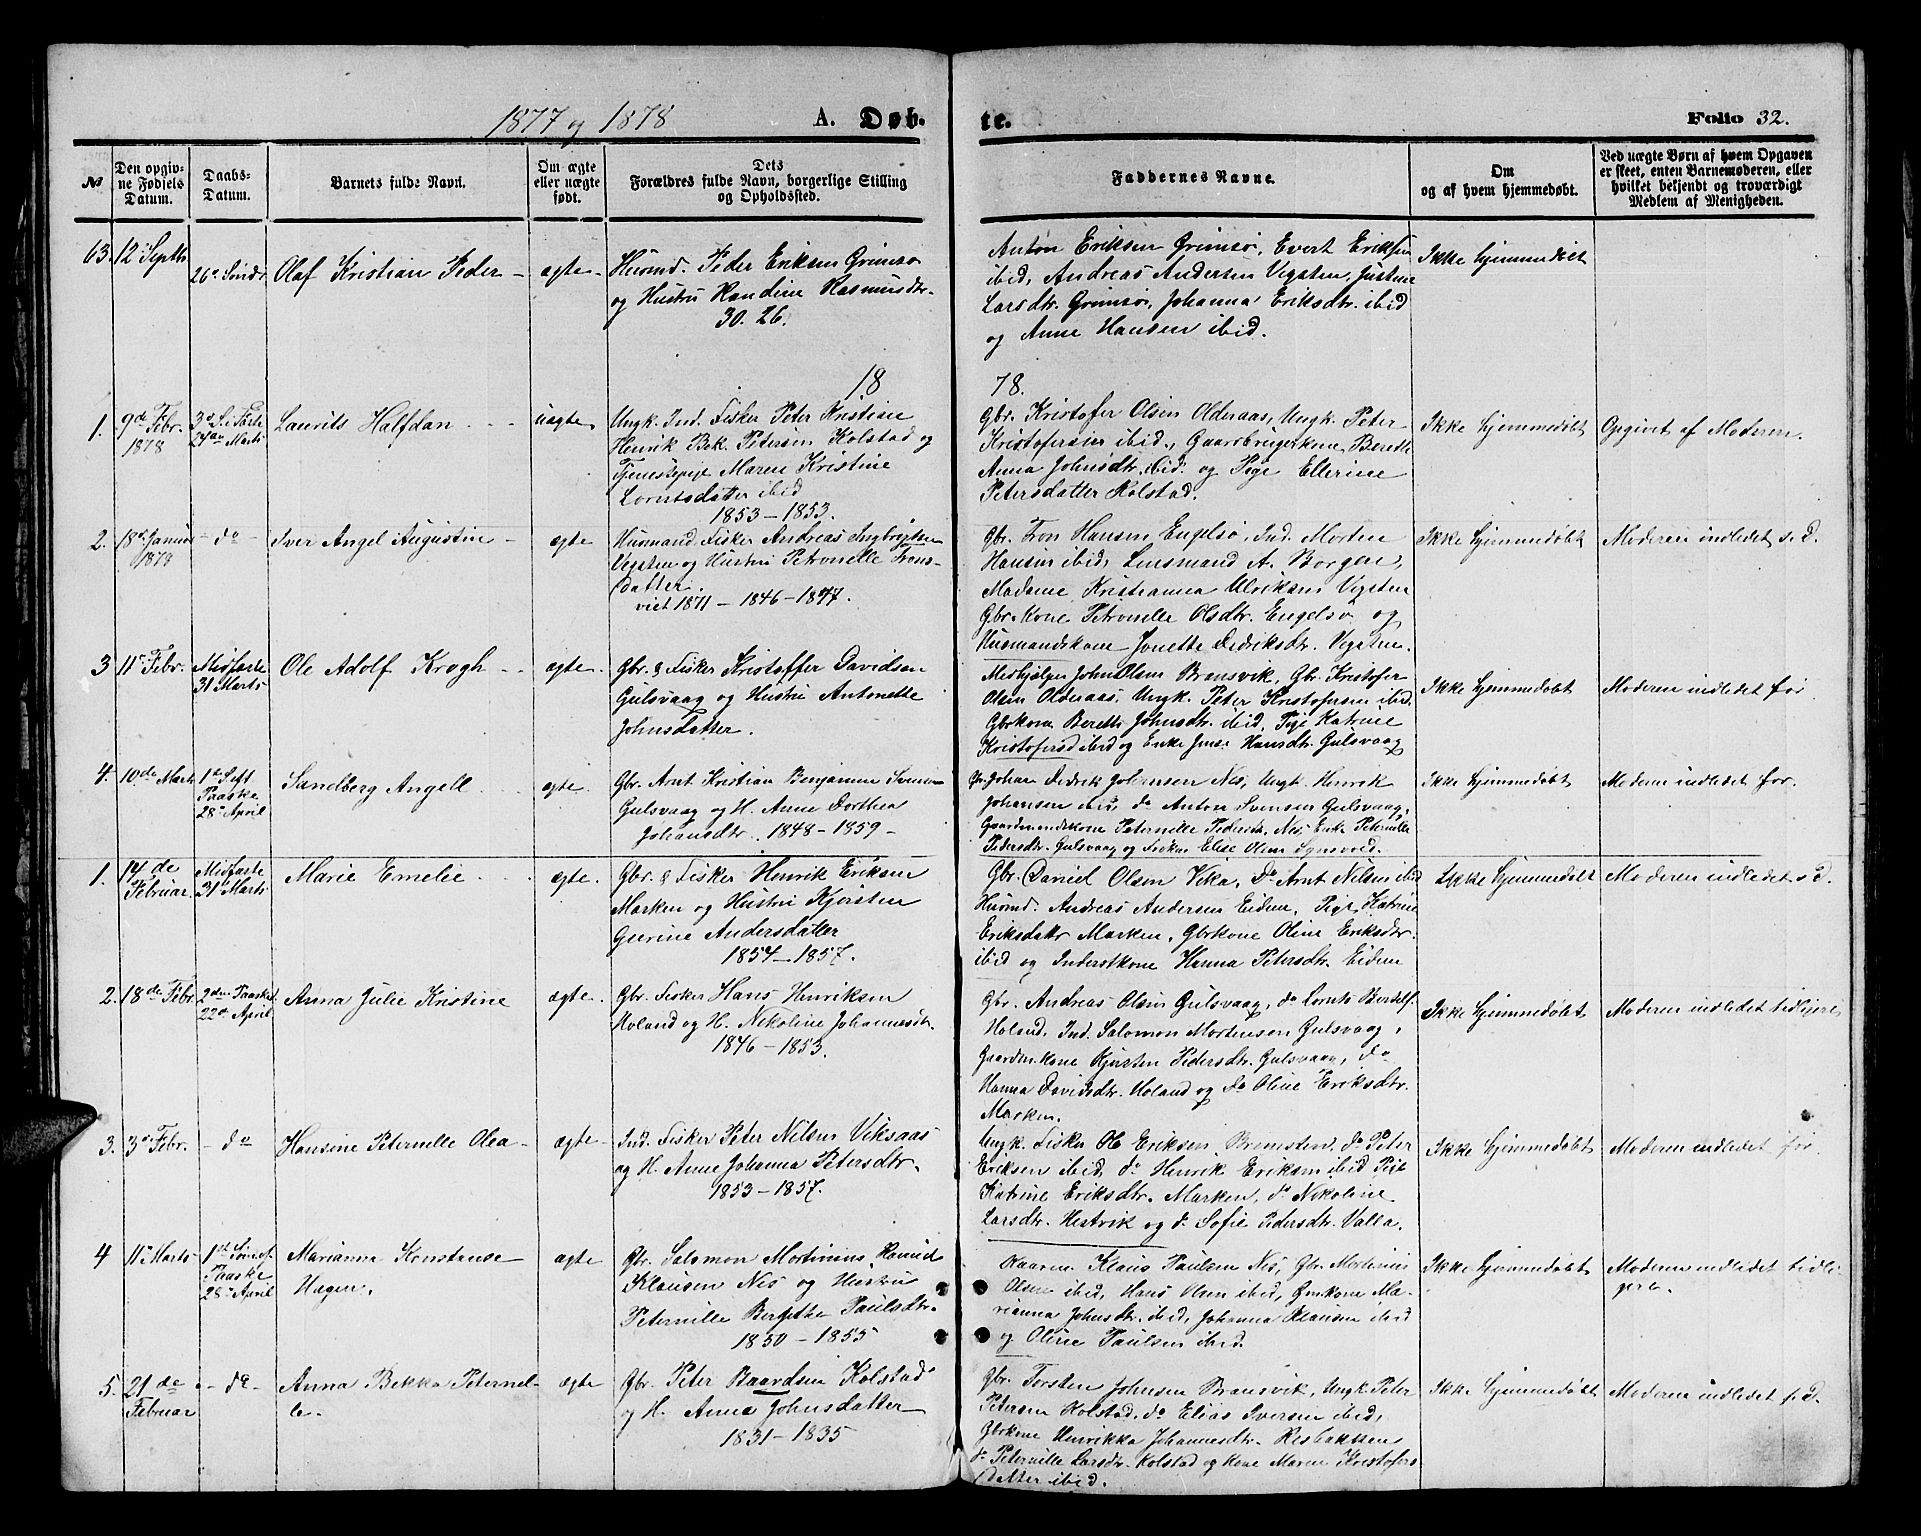 1877 og 1878 A. Døb- te. Folio 32.
No
Den opgiv-
ne Fødsels
Datum.
Daabs-
Datum.
Barnets fulde Navn.
Om ægte
eller uægte
født.
Dets
Forældres fulde Navn, borgerlige Stilling
og Opholdssted.
Faddernes Navne.
Om
og af hvem hjemmedøbt.
Ved uægte Børn af hvem Opgaven
er skeet, enten Barnemoderen, eller
hvilket bekjendt og troværdigt
Medlem af Menigheden.
63. 12 Septb
26de Søndr.
Olaf Kristian Peder -
ægte -
Husmd. Peder Eriksen Grimsø
og Hustru Randine Rasmusdtr.
30. 26.
Anton Eriksen Grimsø, Evert Eriksen
ibid, Andreas Andersen Vegsten, Justine
Larsdtr. Grimsø, Johanna Eriksdtr. ibid
og Anne Hansen ibid.
Ikke hjemmedøbt
18 78.
1. 9de Febr.
1878
24de Marts
Laurits Halfdan
uægte
Ungk. Ind. Fisker Peter Kristian
Henrik Bek. Petersen Kolstad og
Tjenestepige Maren Kristine
Lorntsdatter ibid
1853 - 1853.
Gbr. Kristofer Olsen Olderaas, Ungk. Peter
Kristofersen ibid., Gaardbrugerkone Berette
Anna Johnsdtr. ibid. og Pige Ellerine
Petersdatter Kolstad.
Ikke hjemmedøbt
Opgivet af Moderen.
2. 18de Januar
1878
- do -
Iver Angel Augustin -
ægte
Husmand Fisker Andreas Ingbrigtsen
Vegsten og Hustru Petronelle
datter.
viet 1871 - 1846 - 1847.
Gbr. Hansen Engelsø, Ind. Morten
Hansen ibid, Lensmand A. Borgen,
Madame Kristianna Ulriksen Vegsten
Gbr.kone Petronelle Olsdtr. Engelsø og
Husmandskone Jonette Dedriksdtr. Vegsten.
Ikke hjemmedøbt
Moderen indledet s. D.
3 11te Febr.
Midfaste
31 Marts
Ole Adolf Krogh
ægte
Gbr. & Fisker Kristoffer Davidsen
Gulsvaag og Hustru Antonette
Johnsdatter.
Medhjælper John Olsen Brønsvik, Gbr. Kristofer
Olsen Olderaas, Ungk. Peter Kristofersen ibid.
Gbrkone Berette Johnsdtr. ibid, Pige Katrine
Kristofersd ibid og Enke Hansdtr. Gulsvaag
Ikke hjemmedøbt
Moderen indledet før
4. 10de Marts
1ste S. eft
Paaske
28de April
Sandberg Angell
ægte.
Gbr. Arnt Kristian Benjamin
Gulsvaag og H. Anne Dorthea
Johansdtr. 1848 - 1859 -
Gbr. Johan Dedrik Johansen Nes, Ungk. Henrik
Johansen ibid, do Anton Svensen Gulsvaag,
Gaardmandskone Peternille Pedersdtr. Nes, Enke Peternille
Pedersdtr. Gulsvaag og Frøken Elise Olsen
Ikke hjemmedøbt
Moderen indledet før.
1. 14de
Februar
Midfaste
31 Marts
Marie Emelie
ægte.
Gbr. & Fisker Henrik Eriksen
Marken og Hustru Kjersten
Guerine Andersdatter
1854 - 1857.
Gbr. Daniel Olsen Vika, Do Arnt Nilsen ibid
Husmd. Andreas Andersen Eidem, Pige Katrine
Eriksdattr Marken, Gbrkone Oline Eriksdtr.
ibid og Inderstkone Hanna Petersdtr. Eidem
Ikke hjemmedøbt
Moderen indledet s. D.
2. 18de Febr.
2den Paasked.
22de April
Anna Julie Kristine
ægte.
Gbr. Fisker Hans Henriksen
Holand og H. Nekoline Johannesdtr.
1846 - 1853.
Gbr. Andreas Olsen Gulsvaag, do Lornts
Holand, Ind. Salomon Mortensen Gulsvaag,
Gaardm.kone Kjersten Pedersdtr. Gulsvaag, do
Hanna Davidsdtr. Holand og do Oline Eriksdtr.
Marken.
Ikke hjemmedøbt
Moderen indledet tidligere
3. 3de Febr.
- do
Hansine Peternille Olea -
ægte -
Ind. Fisker Peter Nilsen Viksaas
og H. Anne Johanna Petersdtr.
1853 - 1857.
Ungk. Fisker Ole Eriksen Bremstein, do Peter
Eriksen ibid, do Henrik Eriksen ibid Pige
Katrine Eriksdtr. Marken, do Nekoline
Larsdtr. Hestvik og do Sofie Pedersdtr. Valla.
Ikke hjemmedøbt
Moderen indledet før
4 11te Marts
1ste Søn. ef.
Paaske
28de April
Marianna Konstanse
Hagen.
ægte
Gbr. Salomon Mortinius
Klausen Nes og Hustru
Peternille Bergitha Paulsdtr.
1850 - 1855
Klaus Paulsen Nes, Gbr. Mortinius
Olsen ibid, Hans Olsen ibid, Gmkone Ma-
rianna Johnsdtr. ibid, Johanna Klausen ibid
og Oline Paulsen ibid.
Ikke hjemmedøbt
Moderen indledet tidli-
gere.
5. 21de
Februar
- do -
Anna Bekka Peternel-
le.
ægte
Gbr. Peter Baardsen Kolstad
og H. Anne Johnsdatter
1831 - 1835
Gbr. Torsten Johnsen Brønsvik, Ungk. Peter
Petersen Kolstad, do Elias Iversen ibid,
Gbrkone Henrikka Johannesdtr. Resbakken
do Peternille Larsdtr. Kolstad og Kone Maren Kristofers
datter ibid.
Ikke hjemmedøbt
Moderen indledet s. D.